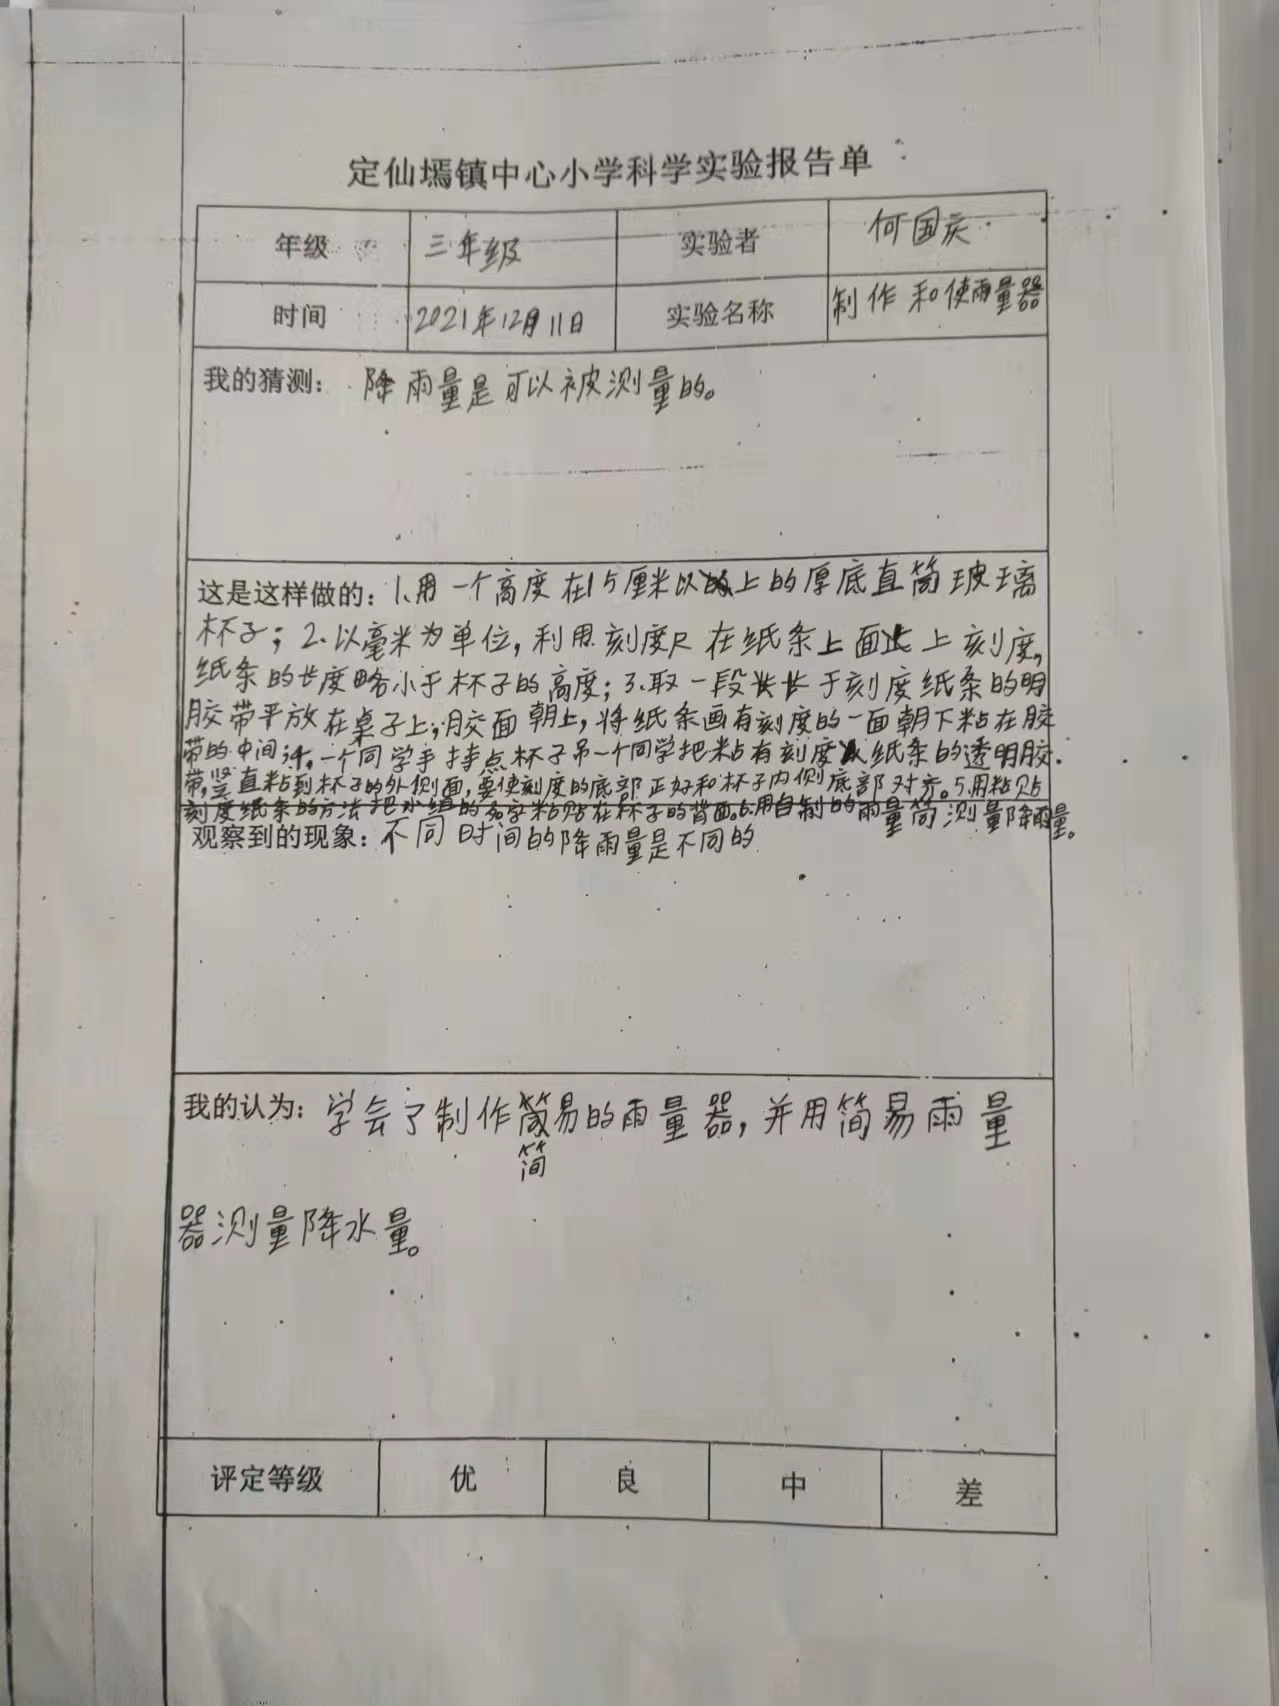 定仙墕镇中心小学科学实验报告单
年级 三年级 实验者 何国庆
时间 2021年12月11日 实验名称 制作和使雨量器
我的猜测： 降雨量是可以被测量的。
这是这样做的：1、用一个高度在15厘米以上的厚底直筒玻璃
杯子；2.以毫米为单位，利用刻度尺在纸条上面上刻度，
纸条的长度略小于杯子的高度；3.取一段长于刻度纸条的明
胶带平放在桌子上；胶面朝上，将纸条画有刻度的一面朝下粘在胶
带的中间；4.一个同学手持点杯子另一个同学把粘有刻度纸条的透明胶
带，竖直粘到杯子的外侧面，要使刻度的底部正好和杯子内侧底部对齐。5.用粘贴
刻度纸条的方法把小组的名字粘贴在杯子的背面。6.用自制的雨量筒测量降雨量。
观察到的现象：不同时间的降雨量是不同的
我的认为：学会了制作简易的雨量器，并用简易雨量
简
器测量降水量。
评定等级 优 良 中 差